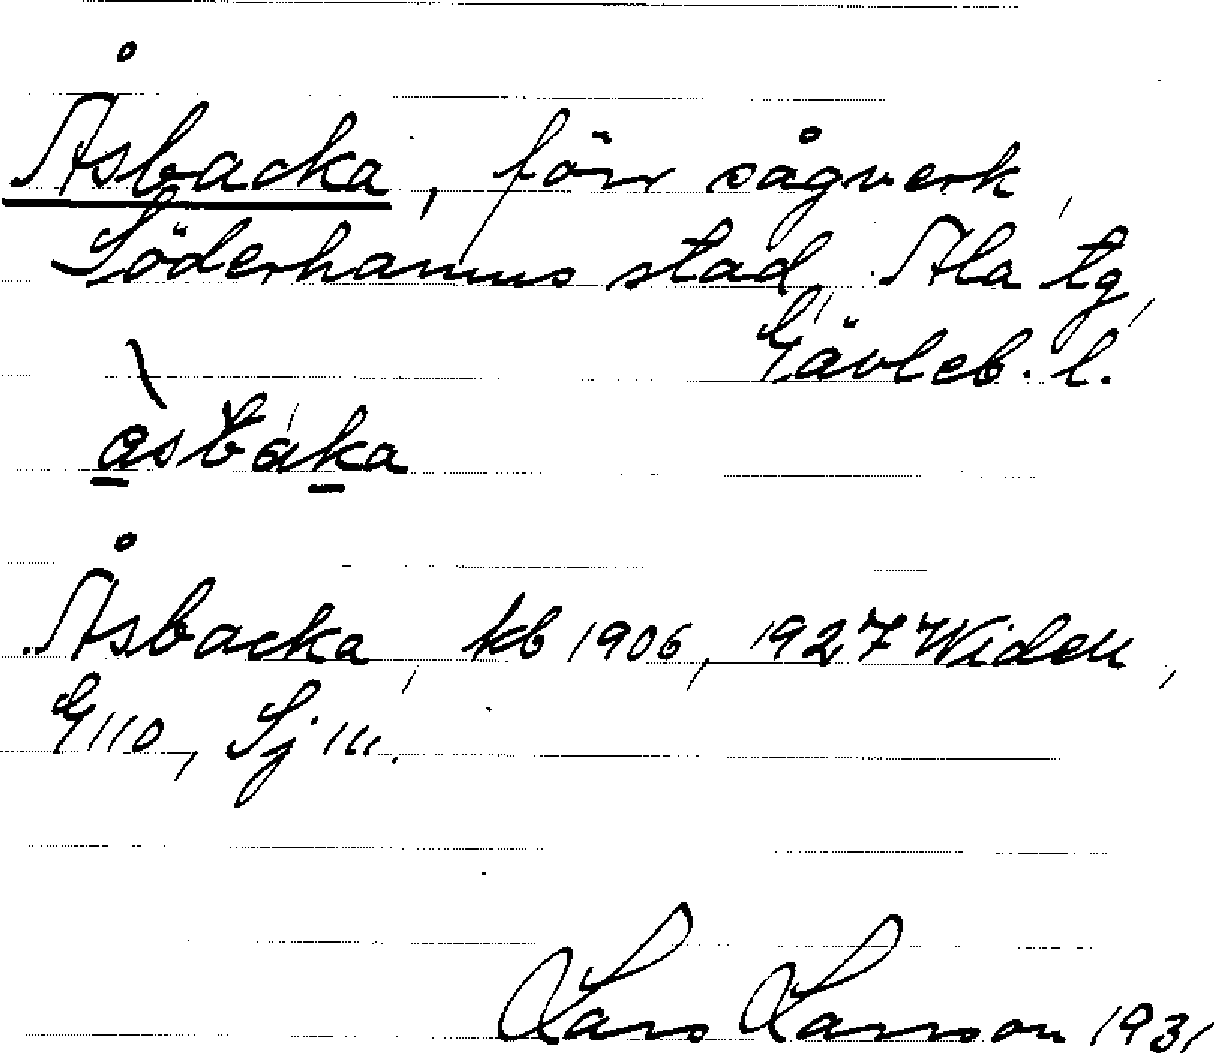 Åsbacka, förr sågverk,
Söderhamns stad, Ala tg,
Gävleb. l.
àsbáka
Åsbacka, kb 1906, 1927 Widell,
G 110, Sj 111.
Lars Larsson 1931